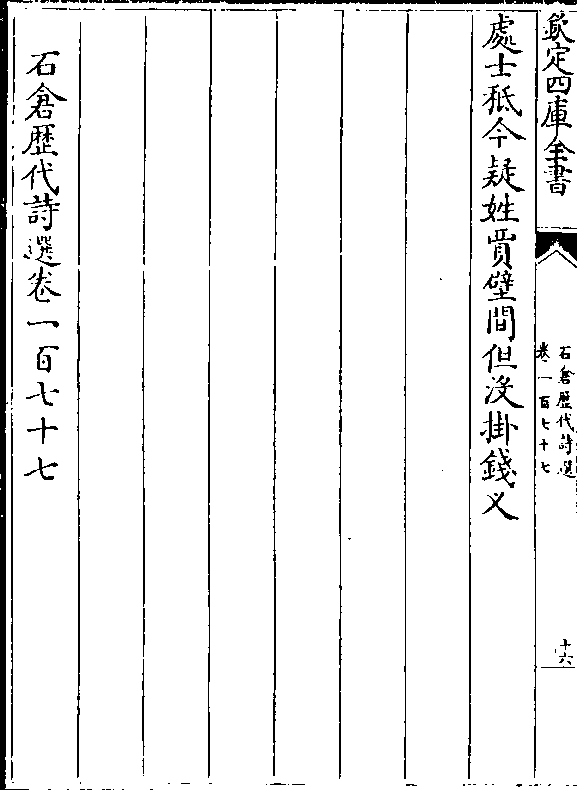 欽定四庫全書
石倉歷代詩選
卷一百七十七
十六
處士秪今疑姓賈壁間但没掛錢义
石倉歷代詩選卷一百七十七